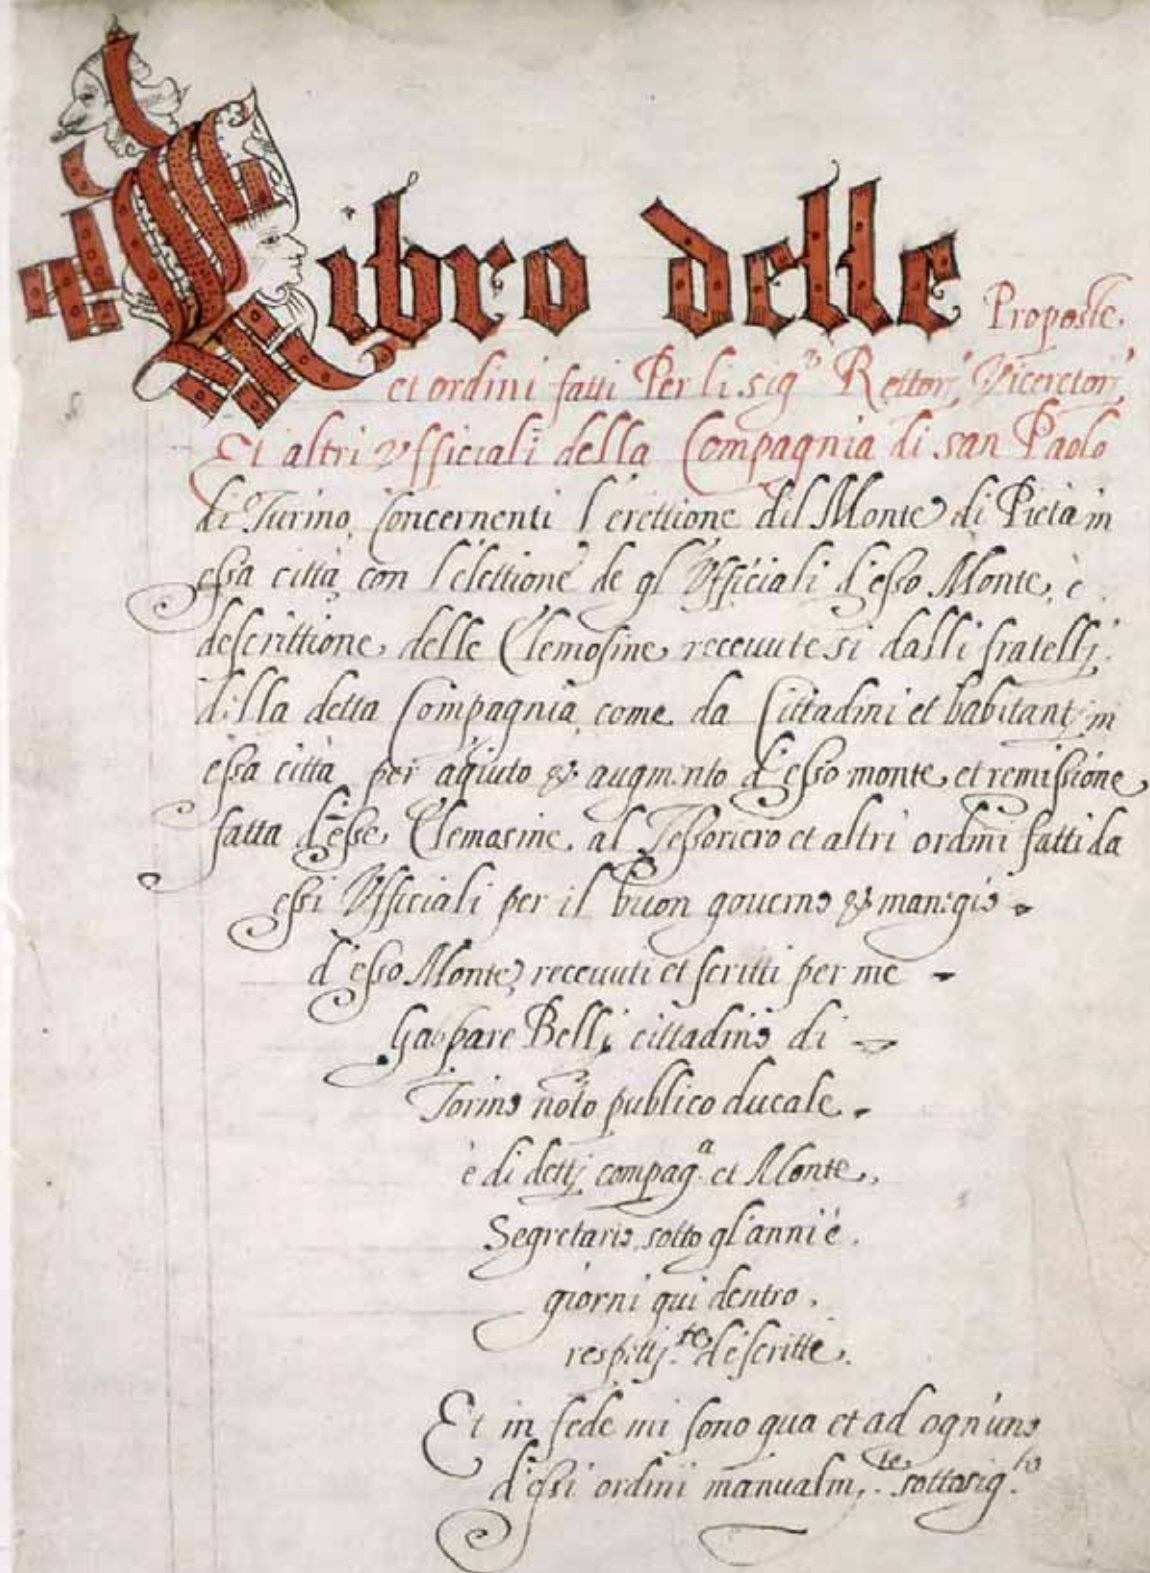 Libro delle Proposte.
et ordini fatti Per li sig.ri Rettorj, Vicerettorj,
Et altri Ufficiali della Compagnia di san Paolo
di Turino, Concernenti l'erettione dil Monte di Pietà in
essa città con l'elettione de gl'Ufficiali d'esso Monte, è
descrittione, delle Elemosine receuute si dalli fratellj
dilla detta Compagnia, come da Cittadini et habitantj in
essa città per agiuto & augmento d'esso monte, et remissione
fatta d'esse, Elemosine, al Tessoriero et altri ordini fatti da
essi Ufficiali per il buon gouerno & manegio
d'esso Monte, receuuti et scritti per me
Gaspare Bellj cittadino di
Torino noto publico ducale
è di dettj compag.a et Monte,
Segretario, sotto gl'anni è
giorni qui dentro,
respettj.te descritte.
Et in fede mi sono qua et ad ogn'uno
d'essi ordini manualm.te sottosig.to